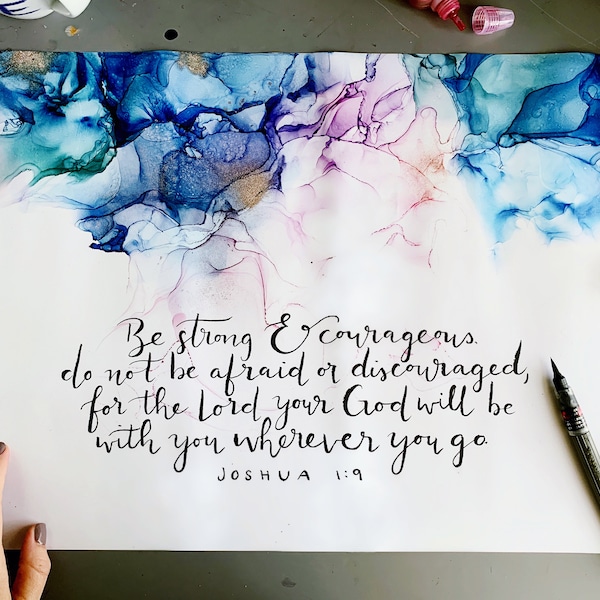 Be strong & courageous.
do not be afraid or discouraged,
for the Lord your God will be
with you wherever you go.
JOSHUA 1:9